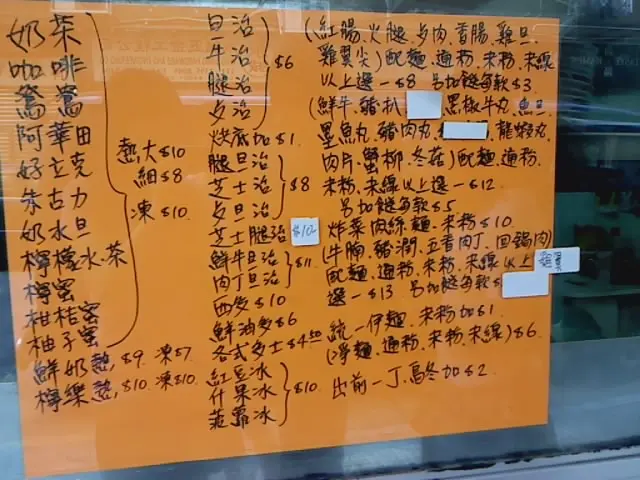 奶茶
咖啡
鴛鴦
阿華田
好立克
朱古力
奶水旦
檸檬水.茶
檸蜜
柑桔蜜
柚子蜜
熱大$10
細$8
凍$10
鮮奶熱,$9 凍$7
檸樂熱,$10 凍$10
旦治
牛治
腿治
夕治
$6
烘底加$1
腿旦治
芝士治
夕旦治
$8
芝士腿治 $10
鮮牛旦治
肉丁旦治
$11
西多$10
鮮油多$6
各式多士$4.50
紅豆冰
什果冰
菠蘿冰
$10
(紅腸、火腿、夕肉、旦
雞翼尖)配麵、通粉、米粉、米線
以上選一$8 另加餸每款$3
(鮮牛、豬扒 黑椒牛丸、魚旦
墨魚丸、豬肉丸 龍蝦丸
肉片、蟹柳、冬菇)配麵、通粉、
米粉、米線以上選一$12
另加餸每款$5
炸菜肉絲麵、米粉$10
(牛腩、豬潤、五香肉丁、回鍋肉)
配麵、通粉、米粉、米線以上
選一$13 另加餸每款$
統一伊麵、米粉加$1
(淨麵、通粉、米粉、米線)$6
出前一丁、烏冬加$2